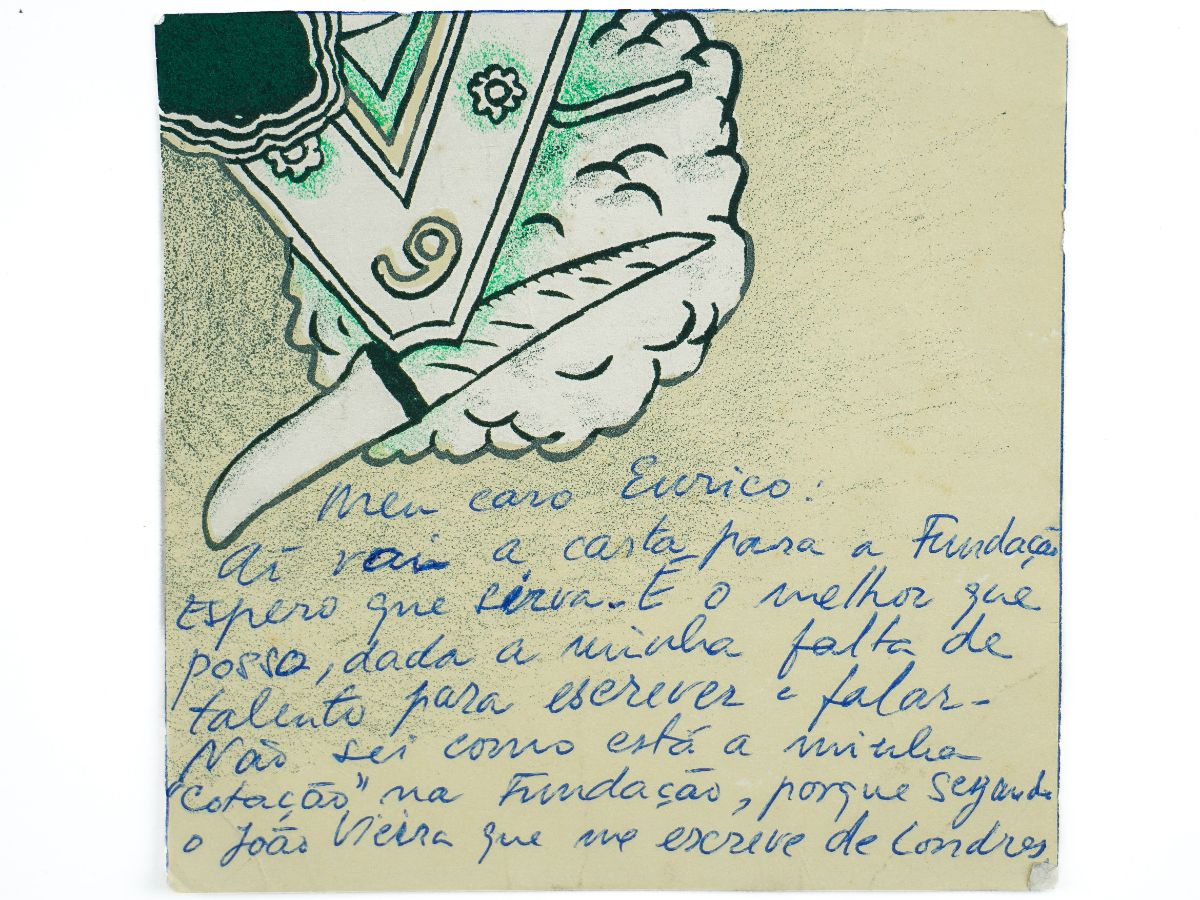 Meu caro Eurico:
Aí vai a carta para a Fundação
Espero que sirva. É o melhor que
posso, dada a minha falta de
talento para escrever e falar.
Não sei como está a minha
"cotação" na Fundação, porque segundo
o João Vieira que me escreve de Londres